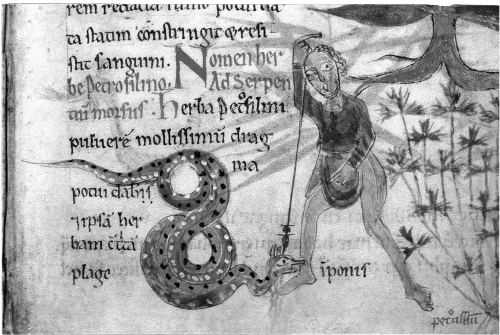 rem redacta
ta statim constringit & resi-
stit sanguini. Nomen her
be Petrosilino. Ad Serpen
tiū morsus. herba Petͦsilini
puluerē mollissimū drag
ma
potui dabis
herbam
plage īponis